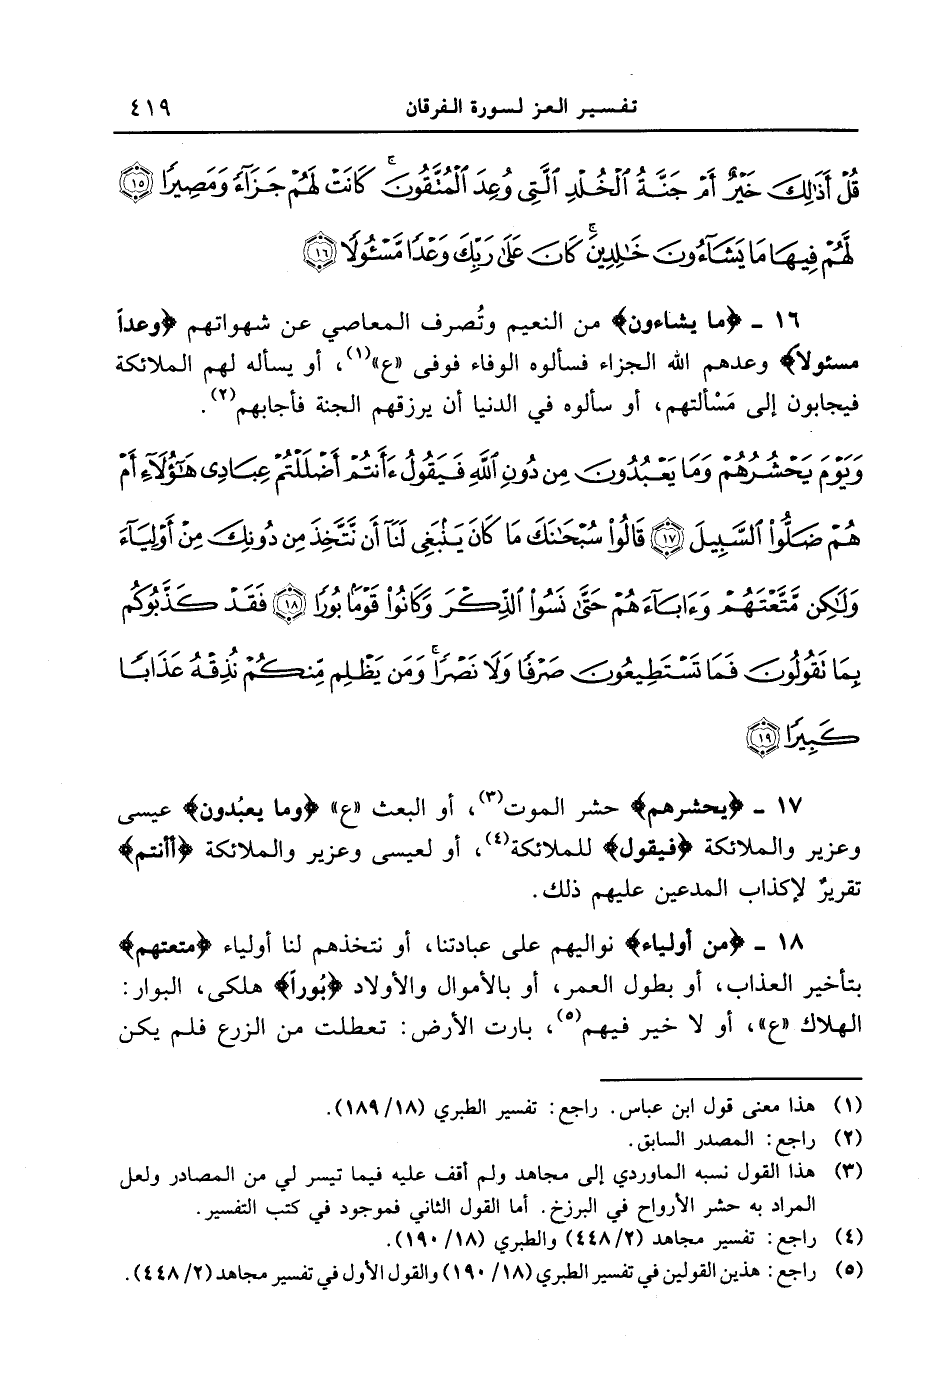 تفسير العز لسورة الفرقان ٤١٩
قُلْ أَذَٰلِكَ خَيْرٌ أَمْ جَنَّةُ ٱلْخُلْدِ ٱلَّتِى وُعِدَ ٱلْمُتَّقُونَ ۚ كَانَتْ لَهُمْ جَزَآءً وَمَصِيرًا ﴿١٥﴾
لَّهُمْ فِيهَا مَا يَشَآءُونَ خَٰلِدِينَ ۚ كَانَ عَلَىٰ رَبِّكَ وَعْدًا مَّسْـُٔولًا ﴿١٦﴾
١٦ ـ ﴿ما يشاءون﴾ من النعيم وتُصرف المعاصي عن شهواتهم ﴿وعداً
مسئولا﴾ وعدهم الله الجزاء فسألوه الوفاء فوفى «ع»(١)، أو يسأله لهم الملائكة
فيجابون إلى مَسْألتهم، أو سألوه في الدنيا أن يرزقهم الجنة فأجابهم(٢).
وَيَوْمَ يَحْشُرُهُمْ وَمَا يَعْبُدُونَ مِن دُونِ ٱللَّهِ فَيَقُولُ ءَأَنتُمْ أَضْلَلْتُمْ عِبَادِى هَٰٓؤُلَآءِ أَمْ
هُمْ ضَلُّوا۟ ٱلسَّبِيلَ ﴿١٧﴾ قَالُوا۟ سُبْحَٰنَكَ مَا كَانَ يَنۢبَغِى لَنَآ أَن نَّتَّخِذَ مِن دُونِكَ مِنْ أَوْلِيَآءَ
وَلَٰكِن مَّتَّعْتَهُمْ وَءَابَآءَهُمْ حَتَّىٰ نَسُوا۟ ٱلذِّكْرَ وَكَانُوا۟ قَوْمًۢا بُورًا ﴿١٨﴾ فَقَدْ كَذَّبُوكُم
بِمَا تَقُولُونَ فَمَا تَسْتَطِيعُونَ صَرْفًا وَلَا نَصْرًا ۚ وَمَن يَظْلِم مِّنكُمْ نُذِقْهُ عَذَابًا
كَبِيرًا ﴿١٩﴾
١٧ ـ ﴿يحشرهم﴾ حشر الموت(٣)، أو البعث «ع» ﴿وما يعبُدون﴾ عيسى
وعزير والملائكة ﴿فيقول﴾ للملائكة(٤)، أو لعيسى وعزير والملائكة ﴿أأنتم﴾
تقريرٌ لإكذاب المدعين عليهم ذلك.
١٨ ـ ﴿من أولياء﴾ نواليهم على عبادتنا، أو نتخذهم لنا أولياء ﴿متعتهم﴾
بتأخير العذاب، أو بطول العمر، أو بالأموال والأولاد ﴿بُوراً﴾ هلكى، البوار:
الهلاك «ع»، أو لا خير فيهم(٥)، بارت الأرض: تعطلت من الزرع فلم يكن
(١) هذا معنى قول ابن عباس. راجع: تفسير الطبري (١٨/١٨٩).
(٢) راجع: المصدر السابق.
(٣) هذا القول نسبه الماوردي إلى مجاهد ولم أقف عليه فيما تيسر لي من المصادر ولعل
المراد به حشر الأرواح في البرزخ. أما القول الثاني فموجود في كتب التفسير.
(٤) راجع: تفسير مجاهد (٢/٤٤٨) والطبري (١٨/١٩٠).
(٥) راجع: هذين القولين في تفسير الطبري (١٨/١٩٠) والقول الأول في تفسير مجاهد (٢/٤٤٨).